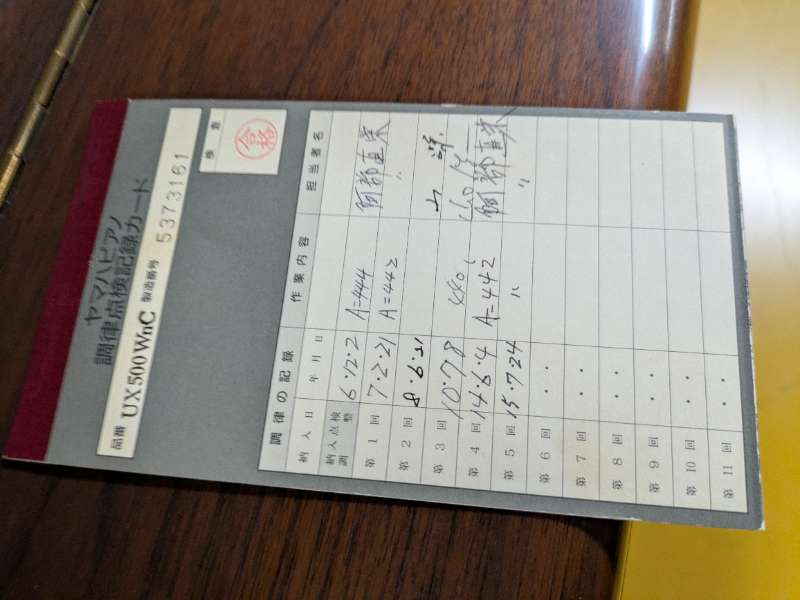 ヤマハピアノ
調律点検記録カード
品番 UX500WnC 製造番号 5373161
検査
合格
調律の記録 作業内容 担当者名
納入日 年 月 日
納入点検調整 6・12・2 A=444 阿部直栄
第1回 7・2・21 A=442 〃
第2回 8・6・21
第3回 10・7・8 440
第4回 14・6・4 A=442 阿部直栄
第5回 15・7・24 〃 〃
第6回 ・ ・
第7回 ・ ・
第8回 ・ ・
第9回 ・ ・
第10回 ・ ・
第11回 ・ ・